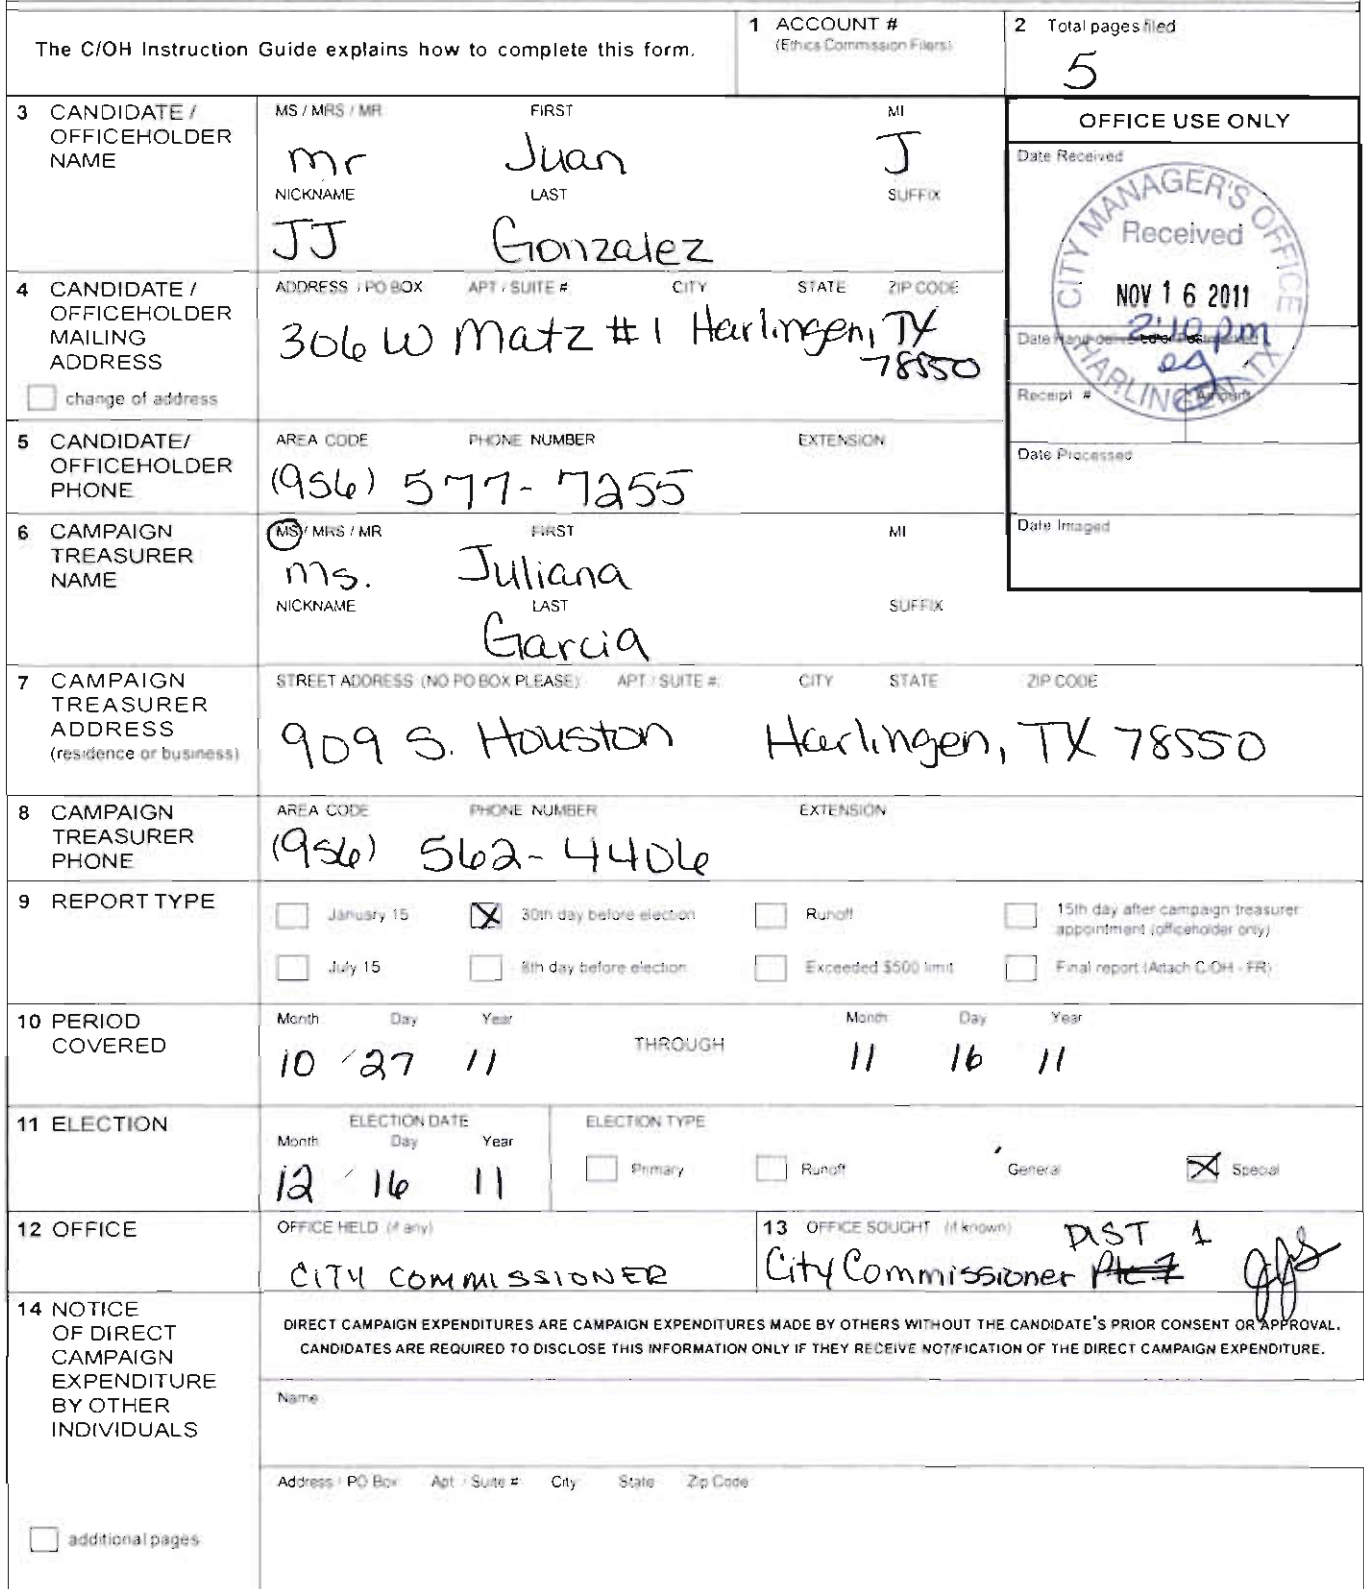 The C/OH Instruction Guide explains how to complete this form.
1 ACCOUNT #
(Ethics Commission Filers)
2 Total pages filed
5
3 CANDIDATE / OFFICEHOLDER NAME
MS / MRS / MR FIRST MI
mr Juan J
NICKNAME LAST SUFFIX
JJ Gonzalez
OFFICE USE ONLY
Date Received
CITY MANAGER'S OFFICE
Received
NOV 16 2011
2:10 pm
eg
HARLINGEN, TX
Receipt #
Amount
Date Processed
Date Imaged
4 CANDIDATE / OFFICEHOLDER MAILING ADDRESS
change of address
ADDRESS / PO BOX APT / SUITE # CITY STATE ZIP CODE
306 W Matz #1 Harlingen, TX
78550
5 CANDIDATE/ OFFICEHOLDER PHONE
AREA CODE PHONE NUMBER EXTENSION
(956) 577-7255
6 CAMPAIGN TREASURER NAME
MS / MRS / MR FIRST MI
Ms. Juliana
NICKNAME LAST SUFFIX
Garcia
7 CAMPAIGN TREASURER ADDRESS
(residence or business)
STREET ADDRESS (NO PO BOX PLEASE) APT / SUITE # CITY STATE ZIP CODE
909 S. Houston Harlingen, TX 78550
8 CAMPAIGN TREASURER PHONE
AREA CODE PHONE NUMBER EXTENSION
(956) 562-4406
9 REPORT TYPE
January 15 30th day before election Runoff 15th day after campaign treasurer appointment (officeholder only)
July 15 8th day before election Exceeded $500 limit Final report (Attach C/OH - FR)
10 PERIOD COVERED
Month Day Year THROUGH Month Day Year
10 / 27 11 11 16 11
11 ELECTION
ELECTION DATE
Month Day Year
12 / 16 11
ELECTION TYPE
Primary Runoff General Special
12 OFFICE
OFFICE HELD (if any)
CITY COMMISSIONER
13 OFFICE SOUGHT (if known)
DIST 1
City Commissioner
14 NOTICE OF DIRECT CAMPAIGN EXPENDITURE BY OTHER INDIVIDUALS
DIRECT CAMPAIGN EXPENDITURES ARE CAMPAIGN EXPENDITURES MADE BY OTHERS WITHOUT THE CANDIDATE'S PRIOR CONSENT OR APPROVAL.
CANDIDATES ARE REQUIRED TO DISCLOSE THIS INFORMATION ONLY IF THEY RECEIVE NOTIFICATION OF THE DIRECT CAMPAIGN EXPENDITURE.
Name
Address / PO Box Apt / Suite # City State Zip Code
additional pages